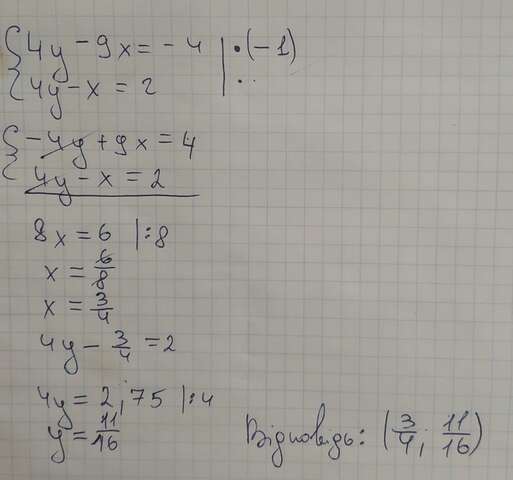 { 4y - 9x = -4 | · (-1)
{ 4y - x = 2 | ..
{ -4y + 9x = 4
{ 4y - x = 2
8x = 6 |:8
x = 6/8
x = 3/4
4y - 3/4 = 2
4y = 2,75 |:4
y = 11/16
Відповідь: (3/4; 11/16)